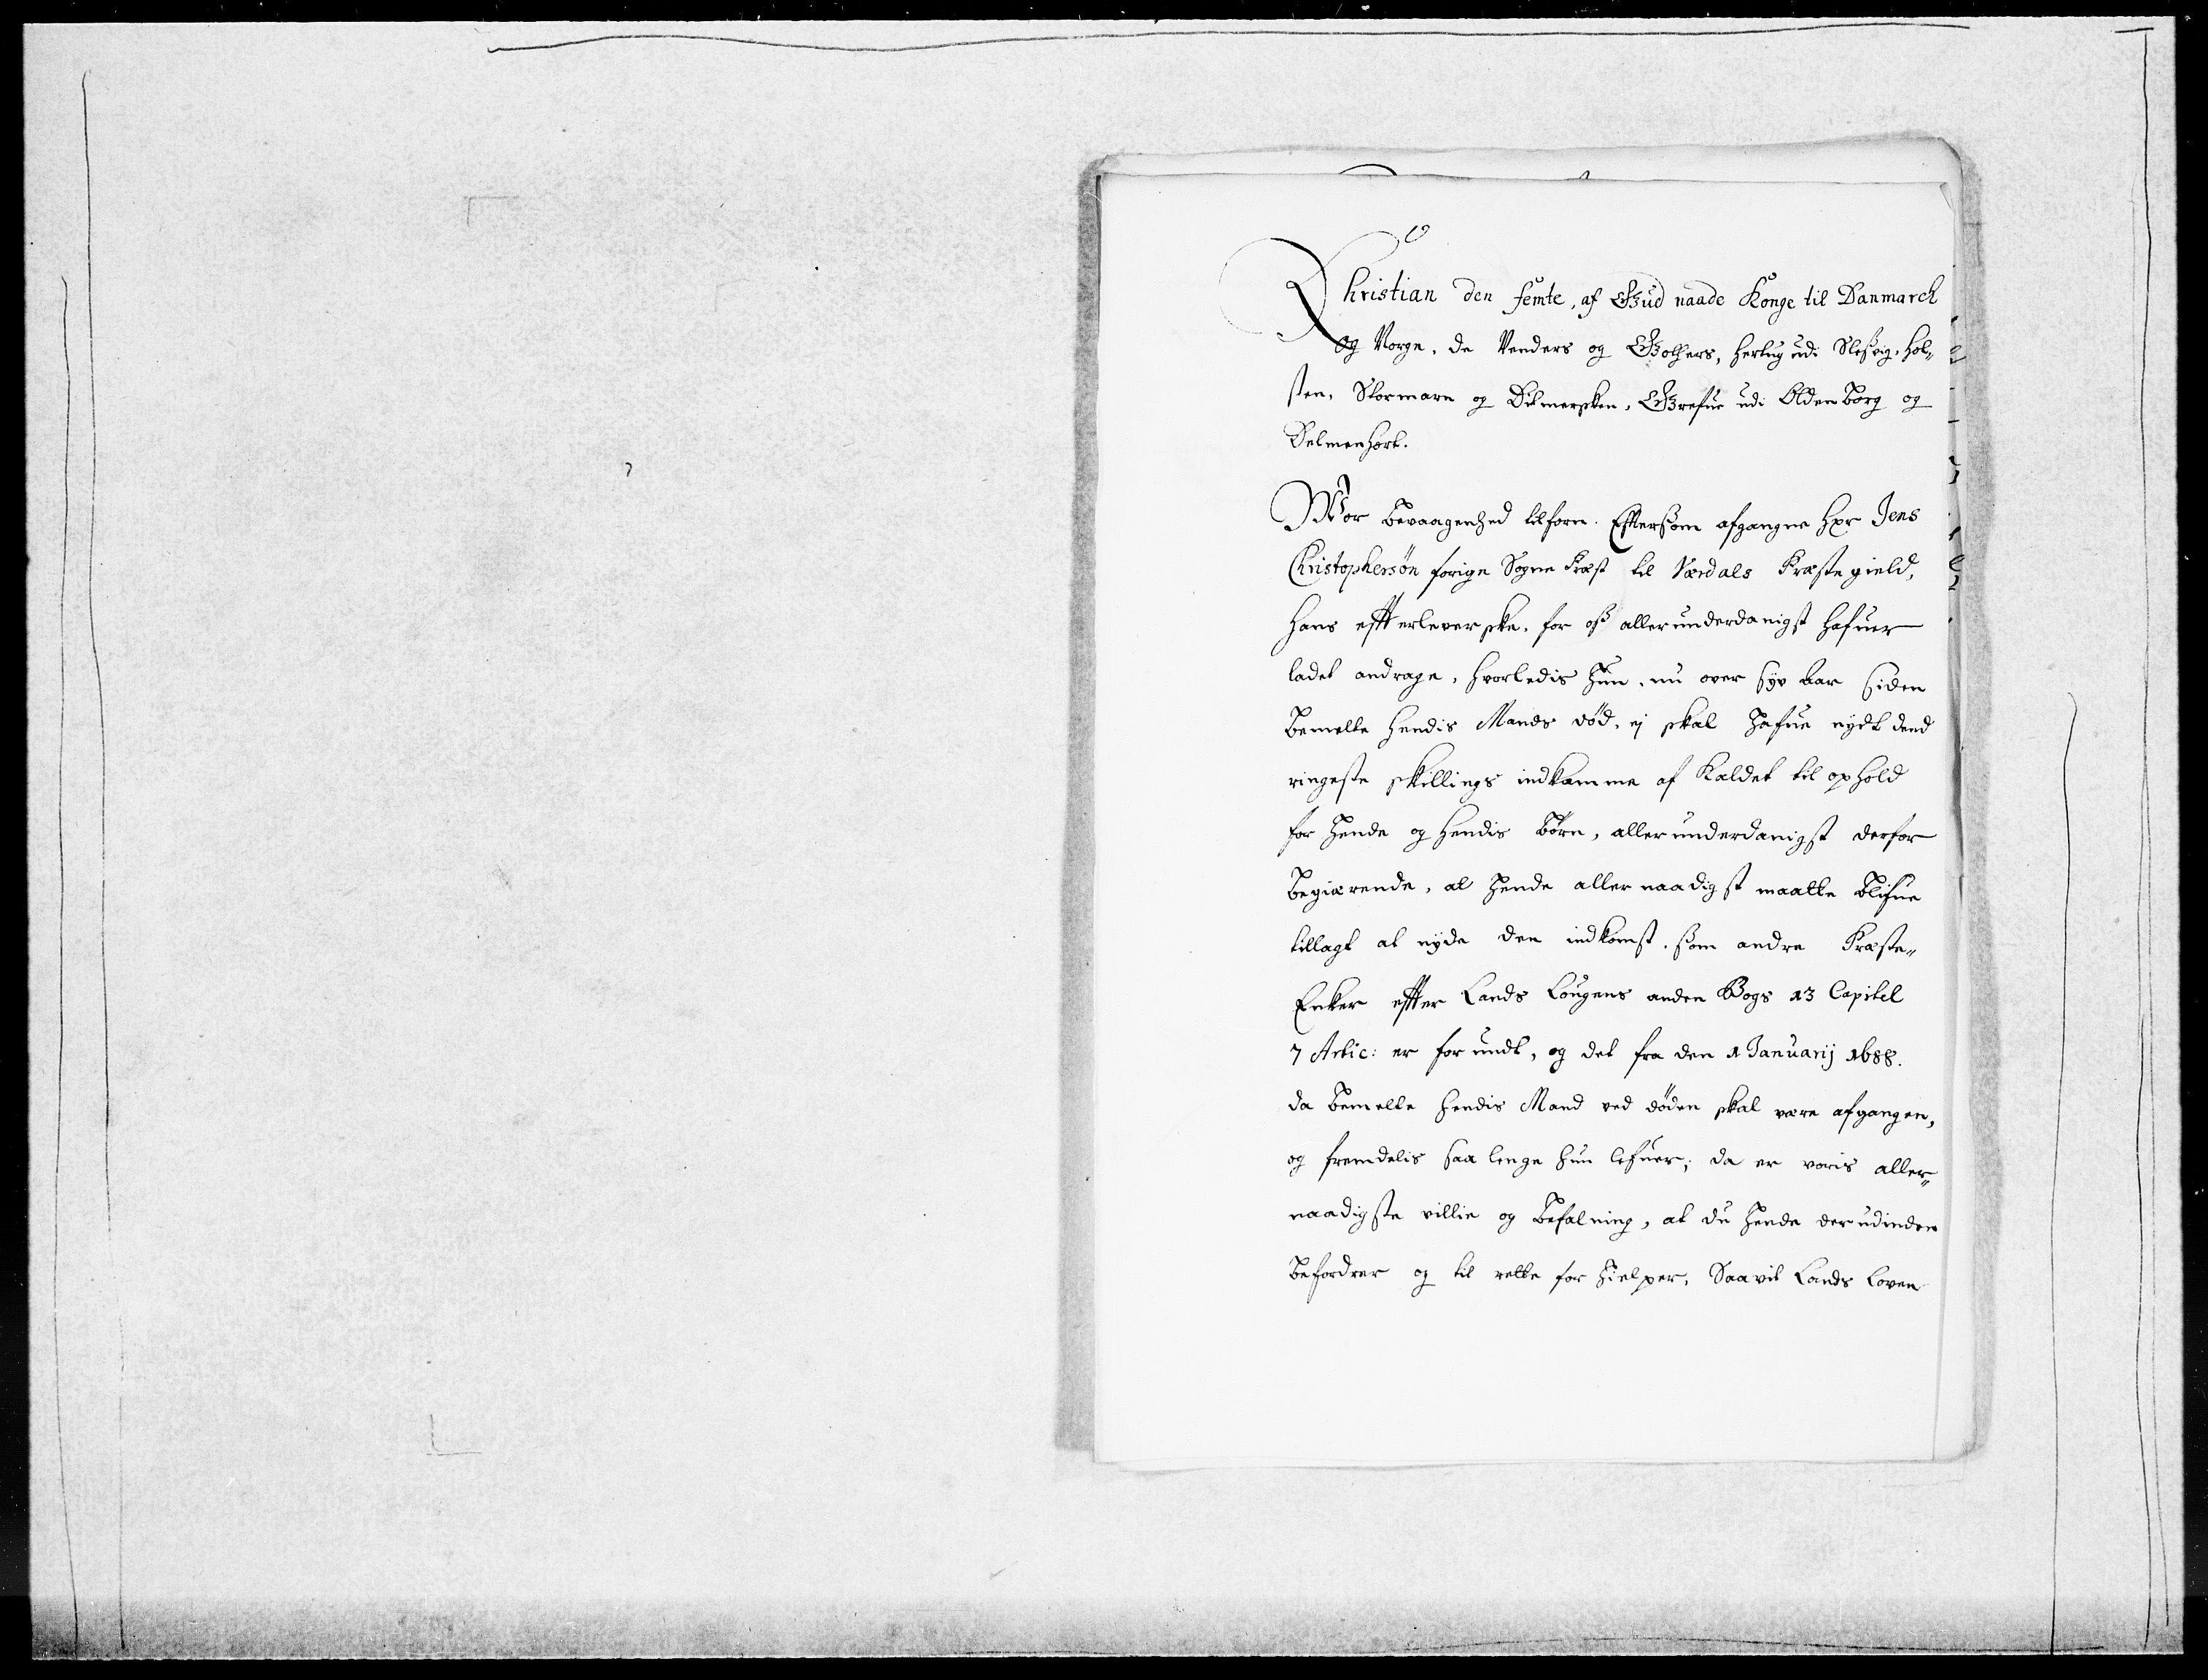 Christian den femte, af Gud naade Konge til Danmarck
og Norge, de Venders og Gothers, hertug udi Sleßvig, Hol-
sten, Stormarn og Ditmersken, Grefue udi Oldenborg og
Delmenhort.
Wor bevaagenhed tilforn. Efftersom afgangne Her Jens
Christophersøn forige Sogne Præst til Værdals Præstegield,
Hans effterleverske, for oß allerunderdanigst hafuer
ladet andrage, hvorledis hun, nu over syv Aar siden
bemelte hendis Mands død, ej skal hafue nydt dend
ringeste skillings indkomme af Kaldet til ophold
for hende og hendis børn, allerunderdanigst derfor
begiærende, at hende allernaadigst maatte blifue
tillagt at nyde den indkomst, som andre Præste-
Enker effter Lands Lougens anden Bogs 13 Capitel
7 Artic: er forundt, og det fra den 1 Januarij 1688.
da bemelte hendis Mand ved døden skal være afgangen,
og fremdelis saa lenge hun lefuer; da er voris aller-
naadigste villie og befalning, at du hende derudinden
befordrer og til rette forhielper, Saavit Lands Loven